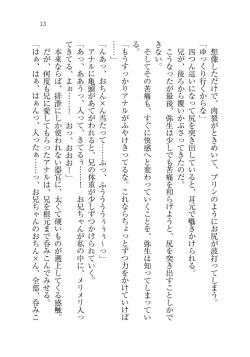 13
想像しただけで、肉襞がときめいて、プリンのようにお尻が波打ってしまう。
「ゆっくり行くからな」
四つん這いになって尻を突き出していると、耳元で囁きかけられる。
兄が、後ろから覆いかぶさってきたのだ。
こうなったが最後、弥生は少しでも苦痛を和らげようと、尻を突き出すことしかできない。
そしてその苦痛も、すぐに快感へと変わっていくことを、弥生は知っている。
「もうすっかりアナルがふやけきってるな。これならちょっとずつ力をかけていけば……」
「んあっ、おちん×ん当たって……ふううううぅぅぅ～っ」
アナルに亀頭があてがわれると、兄の体重が少しずつかけられていく。
「あっ、ああうっ、入ってきてるっ……！　お兄ちゃんが私の中に、メリメリ入ってきてるよぉ……！　おっ、おおお！」
本来ならば、排泄にしか使われない器官に、太くて硬いものが遡上してくる感触。
だが、何度も兄に愛してもらったアナルは、兄を根元まで呑みこんでみせる。
「はぁ、はぁ、はぁんっ、入ったぁ……っ。お兄ちゃんのおちん×ん、全部、呑みこ